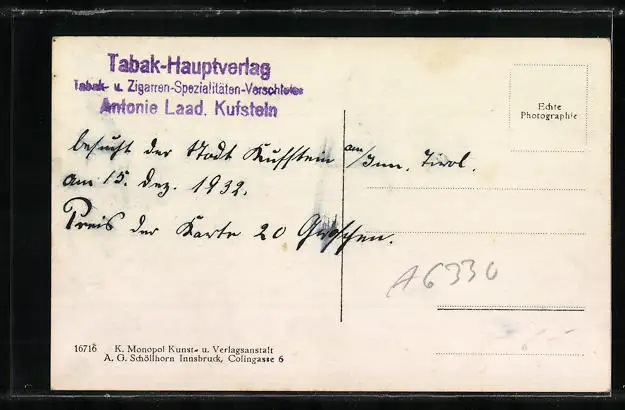 Tabak-Hauptverlag
Tabak- u. Zigarren-Spezialitäten-Verschleiss
Antonie Laad, Kufstein
Echte
Photographie
besucht der Stadt Kuffstein am/Inn. Tirol.
am 15. Dez. 1932.
Preis der Karte 20 Groschen.
A6330
16716 K. Monopol Kunst- u. Verlagsanstalt
A. G. Schöllhorn Innsbruck, Colingasse 6